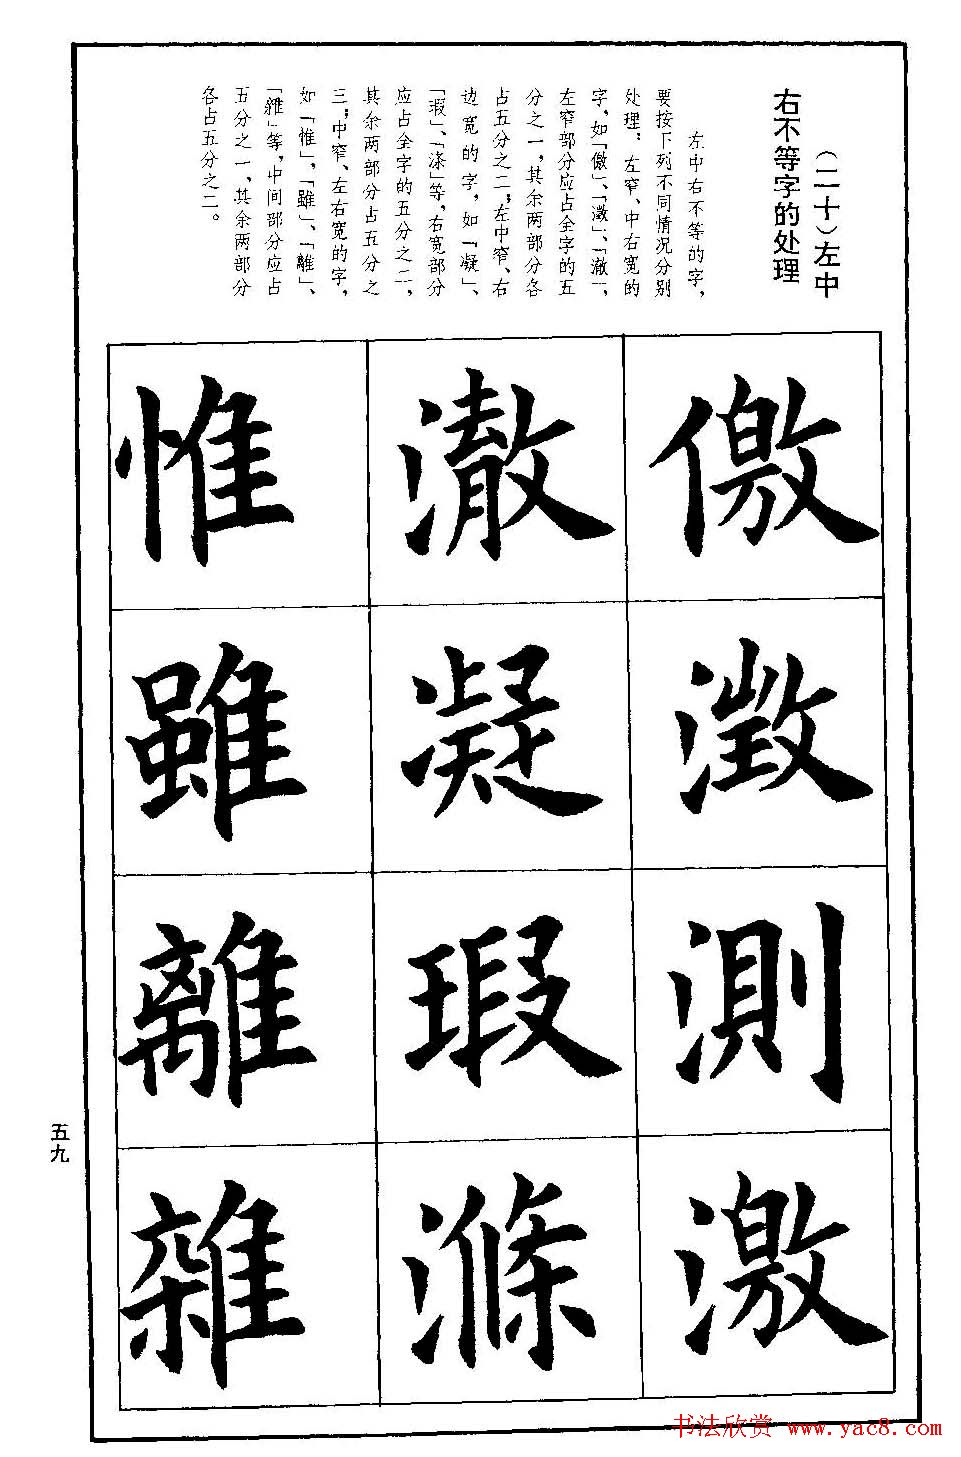 （二十）左中
右不等字的处理
左中右不等的字，
要按下列不同情况分别
处理：左窄、中右宽的
字，如「儌」、「澂」、「澈」，
左窄部分应占全字的五
分之一，其余两部分各
占五分之二；左中窄、右
边宽的字，如「凝」、
「瑕」、「涤」等，右宽部分
应占全字的五分之二，
其余两部分占五分之
三；中窄、左右宽的字，
如「惟」，「雖」、「離」、
「雜」等，中间部分应占
五分之一，其余两部分
各占五分之二。
儌
澂
測
激
澈
凝
瑕
滌
惟
雖
離
雜
五九
书法欣赏 www.yac8.com